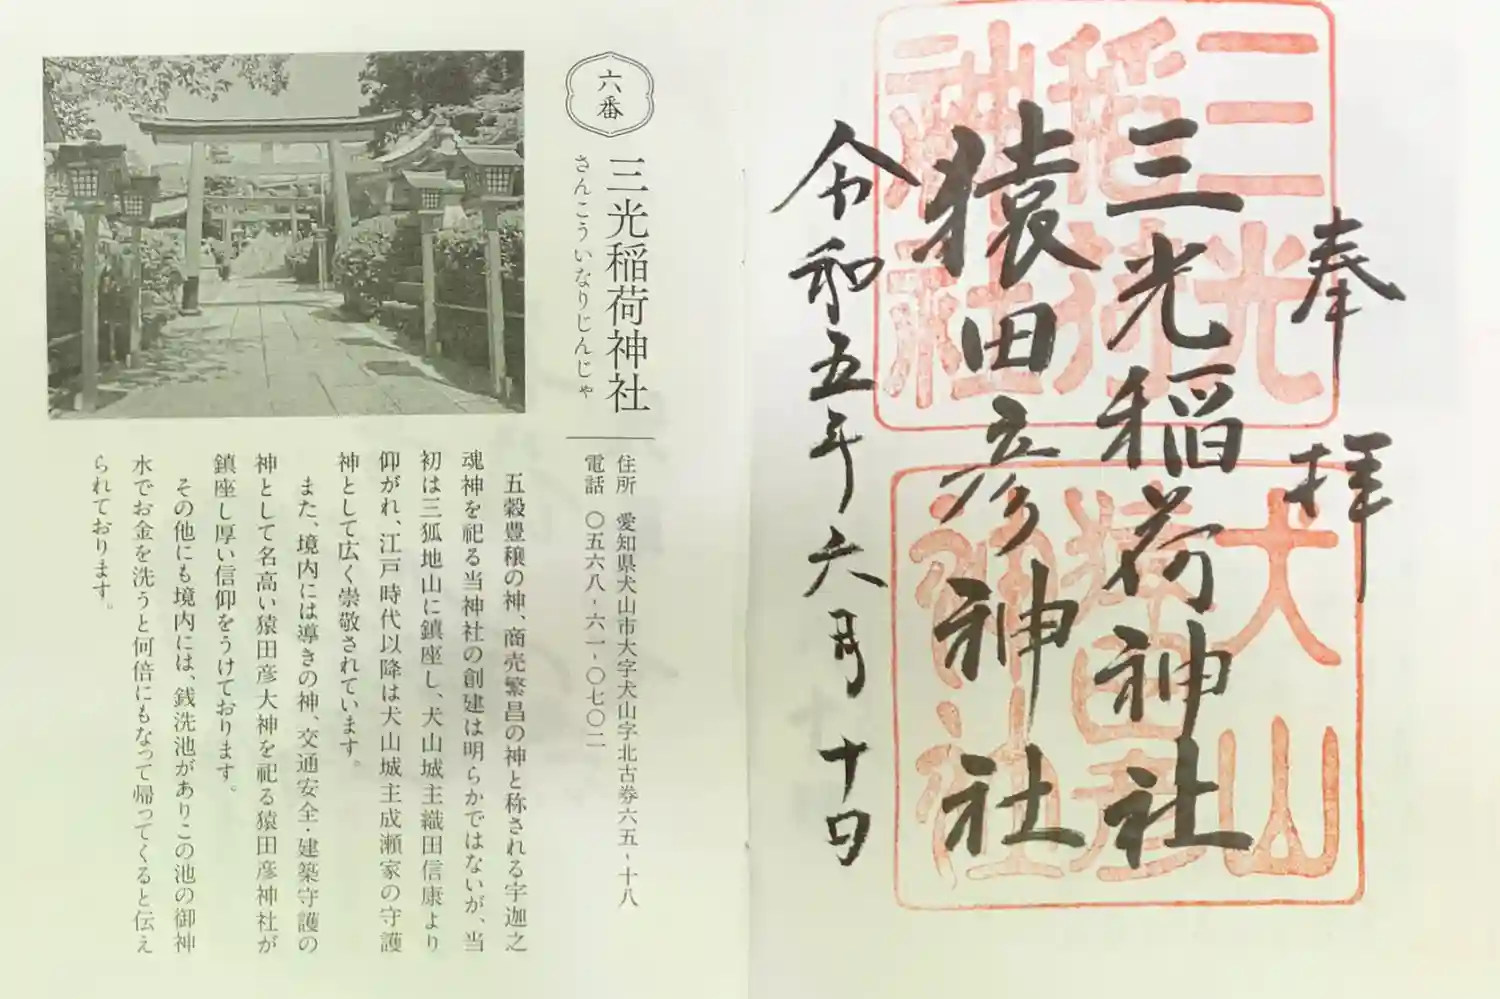 奉拝
三光稲荷神社
猿田彦神社
令和五年六月十日
三光
稲荷
神社
犬山
猿田彦
神社
六番
三光稲荷神社
さんこういなりじんじゃ
住所　愛知県犬山市大字犬山字北古券六五-十八
電話　〇五六八-六一-〇七〇二
五穀豊穣の神、商売繁昌の神と称される宇迦之
魂神を祀る当神社の創建は明らかではないが、当
初は三狐地山に鎮座し、犬山城主織田信康より
仰がれ、江戸時代以降は犬山城主成瀬家の守護
神として広く崇敬されています。
また、境内には導きの神、交通安全・建築守護の
神として名高い猿田彦大神を祀る猿田彦神社が
鎮座し厚い信仰をうけております。
その他にも境内には、銭洗池がありこの池の御神
水でお金を洗うと何倍にもなって帰ってくると伝え
られております。